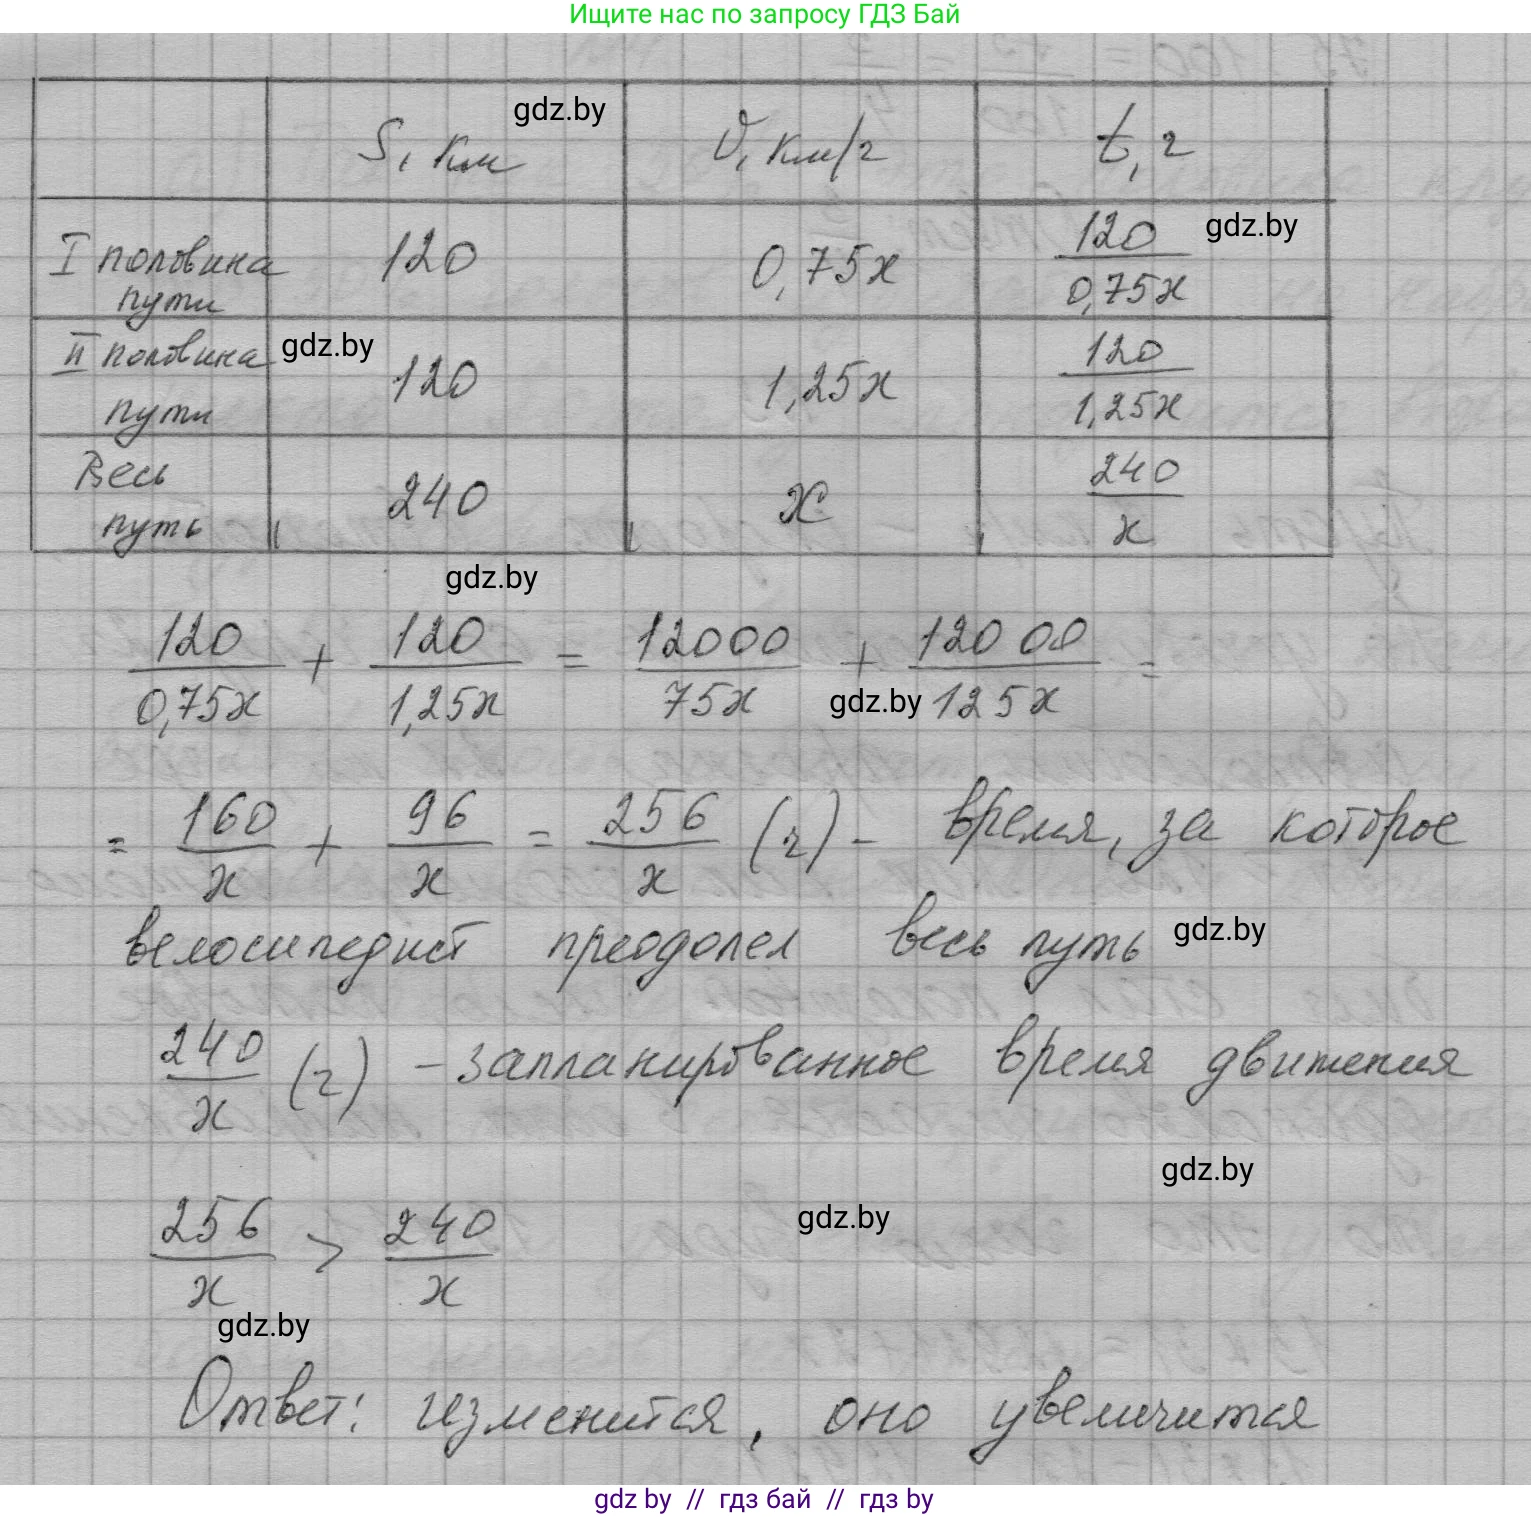 Ищите нас по запросу ГДЗ Бай
S, км gdz.by V, км/ч t, ч
I половина пути 120 0,75x 120/0,75x gdz.by
II половина пути gdz.by 120 1,25x 120/1,25x
Весь путь 240 x 240/x
gdz.by
120/0,75x + 120/1,25x = 12000/75x + 12000/125x =
gdz.by
= 160/x + 96/x = 256/x (ч) - время, за которое
велосипедист преодолел весь путь gdz.by
240/x (ч) - запланированное время движения
gdz.by
256/x > 240/x gdz.by
gdz.by
Ответ: изменится, оно увеличится
gdz by // гдз бай // гдз by